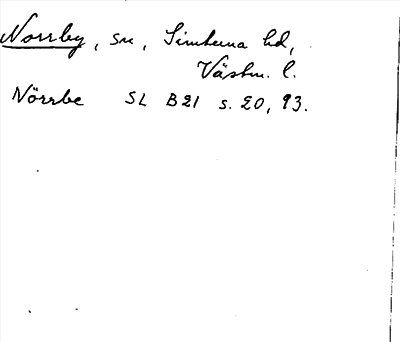 Norrby, sn, Simtuna hd,
Västm. l.
Nörrbe SL B21 s. 20, 93.